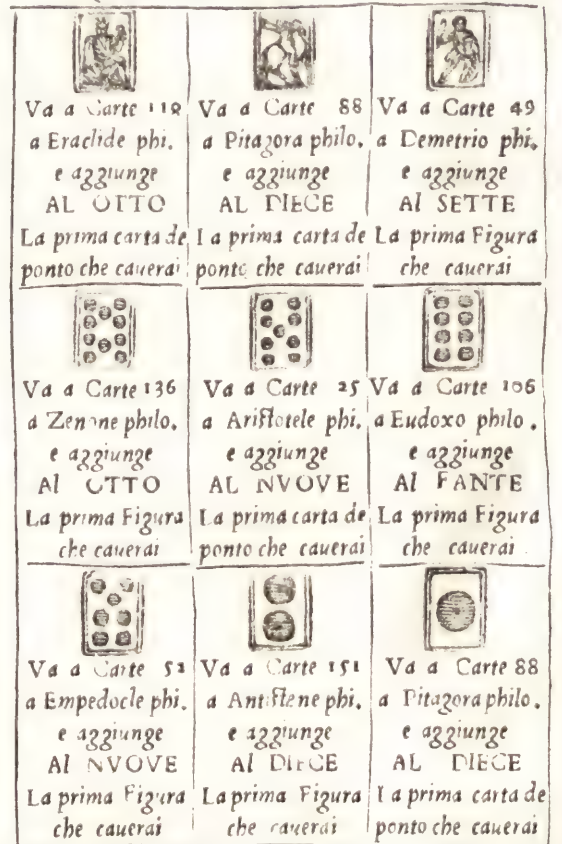 Va a Carte 119
a Eraclide phi.
e aggiunge
AL OTTO
La prima carta de
ponto che cauerai
Va a Carte 88
a Pitagora philo.
e aggiunge
AL DIECE
La prima carta de
ponto che cauerai
Va a Carte 49
a Demetrio phi.
e aggiunge
Al SETTE
La prima Figura
che cauerai
Va a Carte 136
a Zenone philo.
e aggiunge
Al OTTO
La prima Figura
che cauerai
Va a Carte 25
a Aristotele phi.
e aggiunge
AL NVOVE
La prima carta de
ponto che cauerai
Va a Carte 106
a Eudoxo philo.
e aggiunge
Al FANTE
La prima Figura
che cauerai
Va a Carte 52
a Empedocle phi.
e aggiunge
Al NVOVE
La prima Figura
che cauerai
Va a Carte 151
a Antistene phi.
e aggiunge
Al DIECE
La prima Figura
che cauerai
Va a Carte 88
a Pitagora philo.
e aggiunge
AL DIECE
La prima carta de
ponto che cauerai